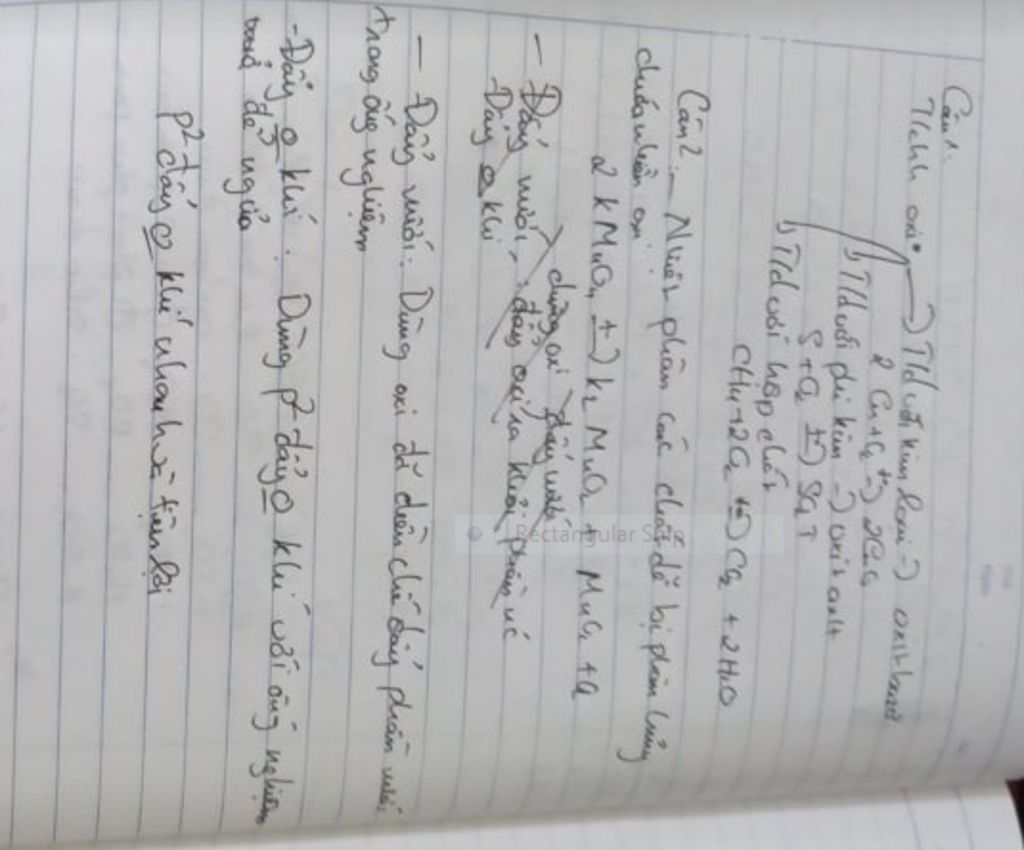 Câu 1.
T/c hh oxi → T/d với kim loại → oxit bazơ
2 Cu + O2 t→ 2CuO
T/d với phi kim → oxit axit
S + O2 t→ SO2 ↑
T/d với hợp chất
CH4 + 2O2 t→ CO2 + 2H2O
Câu 2 - Nhiệt phân các chất dễ bị phân hủy
chứa nhiều oxi.
2 KMnO4 t→ K2MnO4 + MnO2 + O2
chứng oxi đẩy nước
- Đẩy nước, đẩy oxi ra khỏi phản ứ
Đẩy o khí
- Đẩy nước: Dùng oxi để điều chế đẩy phần nước
trong ống nghiệm
- Đẩy o khí: Dùng p2 đẩy o khí với ống nghiệm
để ngửa
p2 đẩy o khí nhanh và tiện lợi
Rectangular S